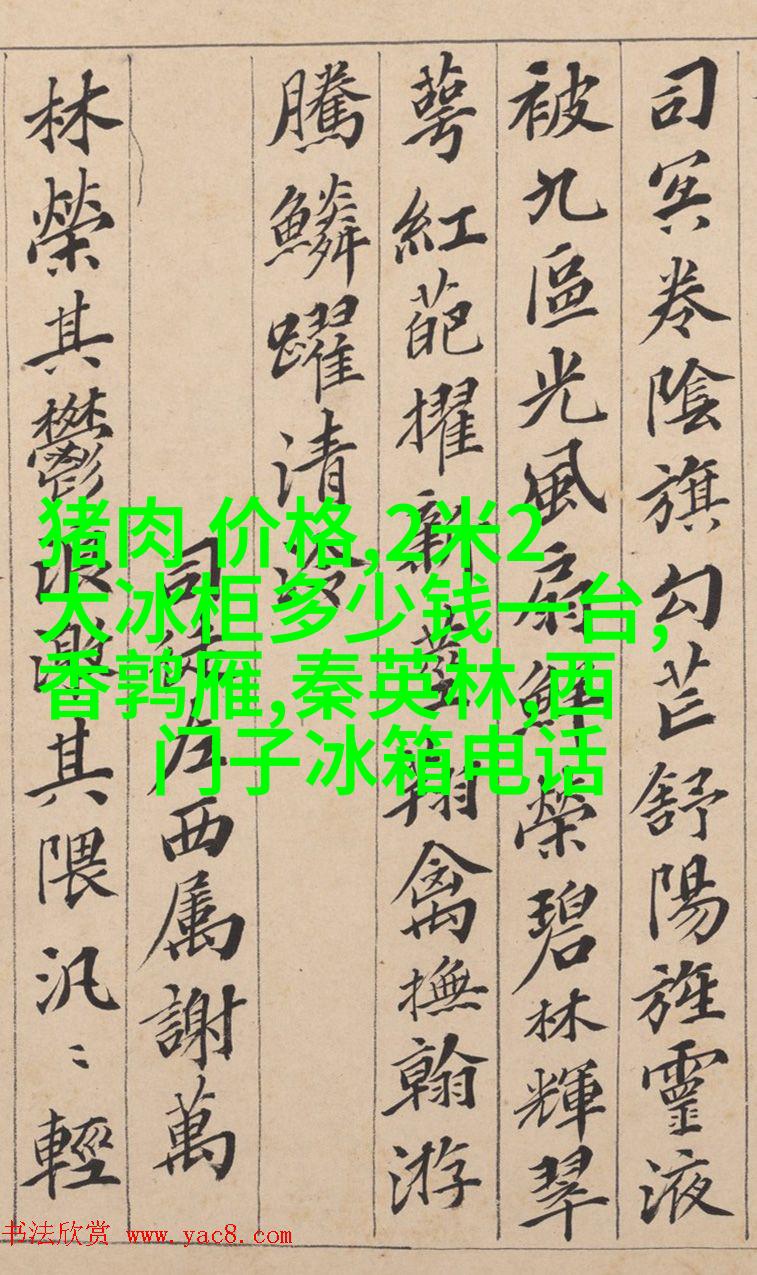 司冥卷陰旗勾芒舒陽旌靈液
被九區光風扇鮮榮碧林輝翠
萼紅葩擢新莖翔禽撫翰游
騰鱗躍清泠
司徒左西属謝萬
林榮其鬱浪激其隈汎〻輕
猪肉 价格,2米2
大冰柜多少钱一台,
香鹑雁,秦英林,西
门子冰箱电话
书法欣赏 www.yac8.com